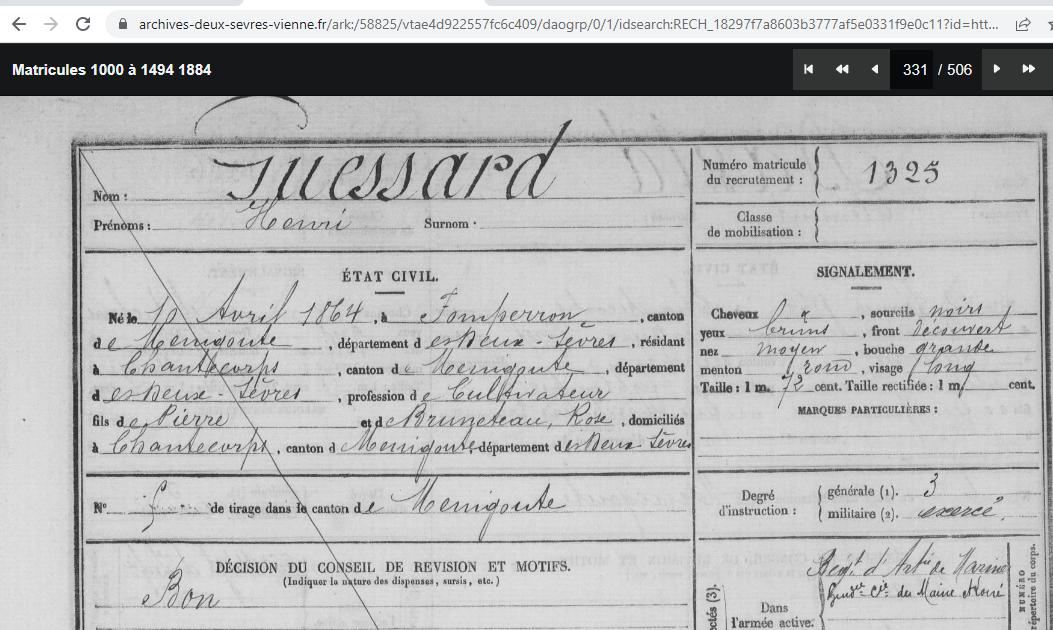 archives-deux-sevres-vienne.fr/ark:/58825/vtae4d922557fc6c409/daogrp/0/1/idsearch:RECH_18297f7a8603b3777af5e0331f9e0c11?id=htt...
Matricules 1000 à 1494 1884
331 / 506
Nom : Guessard
Prénoms : Henri Surnom ·
Numéro matricule du recrutement : 1325
Classe de mobilisation :
ÉTAT CIVIL.
Né le 10 Avril 1864, à Fomperron, canton
de Menigoute, département des Deux-Sèvres, résidant
à Chantecorps, canton de Menigoute, département
des Deux-Sèvres, profession de Cultivateur
fils de Pierre et de Bruneteau, Rose, domiciliés
à Chantecorps, canton d Menigoute, département des Deux Sèvres
N° de tirage dans le canton de Menigoute
DÉCISION DU CONSEIL DE REVISION ET MOTIFS.
(Indiquer la nature des dispenses, sursis, etc.)
Bon
SIGNALEMENT.
Cheveux, sourcils noirs
yeux bruns, front découvert
nez moyen, bouche grande
menton rond, visage long
Taille : 1 m. 72 cent. Taille rectifiée : 1 m cent.
MARQUES PARTICULIÈRES :
Degré d'instruction :
générale (1). 3
militaire (2). exercé.
Dans l'armée active.
Regt d'Artie de Marine
Gendie Cie du Maine & Loire
NUMÉRO
répertoire du corps.